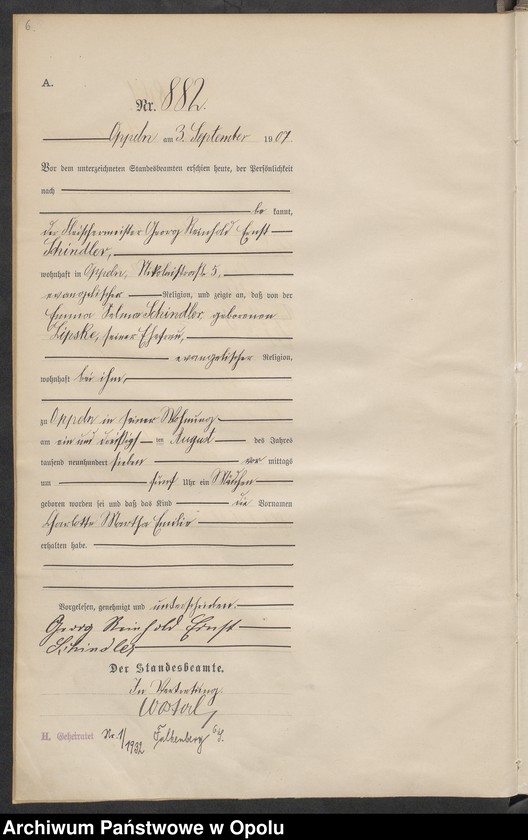 6.
A.
Nr. 882.
Oppeln am 3. September 1907
Vor dem unterzeichneten Standesbeamten erschien heute, der Persönlichkeit
nach
be kannt,
der Fleischermeister Georg Reinhold Ernst
Schindler,
wohnhaft in Oppeln, Nikolaistraße 5,
evangelischer Religion, und zeigte an, daß von der
Emma Selma Schindler geborenen
Lipske, seiner Ehefrau,
evangelischer Religion,
wohnhaft bei ihm,
zu Oppeln in seiner Wohnung
am ein und dreißigsten August des Jahres
tausend neunhundert sieben vor mittags
um fünf Uhr ein Mädchen
geboren worden sei und daß das Kind die Vornamen
Charlotte Martha Emilie
erhalten habe.
Vorgelesen, genehmigt und unterschrieben.
Georg Reinhold Ernst
Schindler
Der Standesbeamte.
In Vertretung.
H. Geheiratet Nr. 1/1932 Falkenberg
Archiwum Państwowe w Opolu